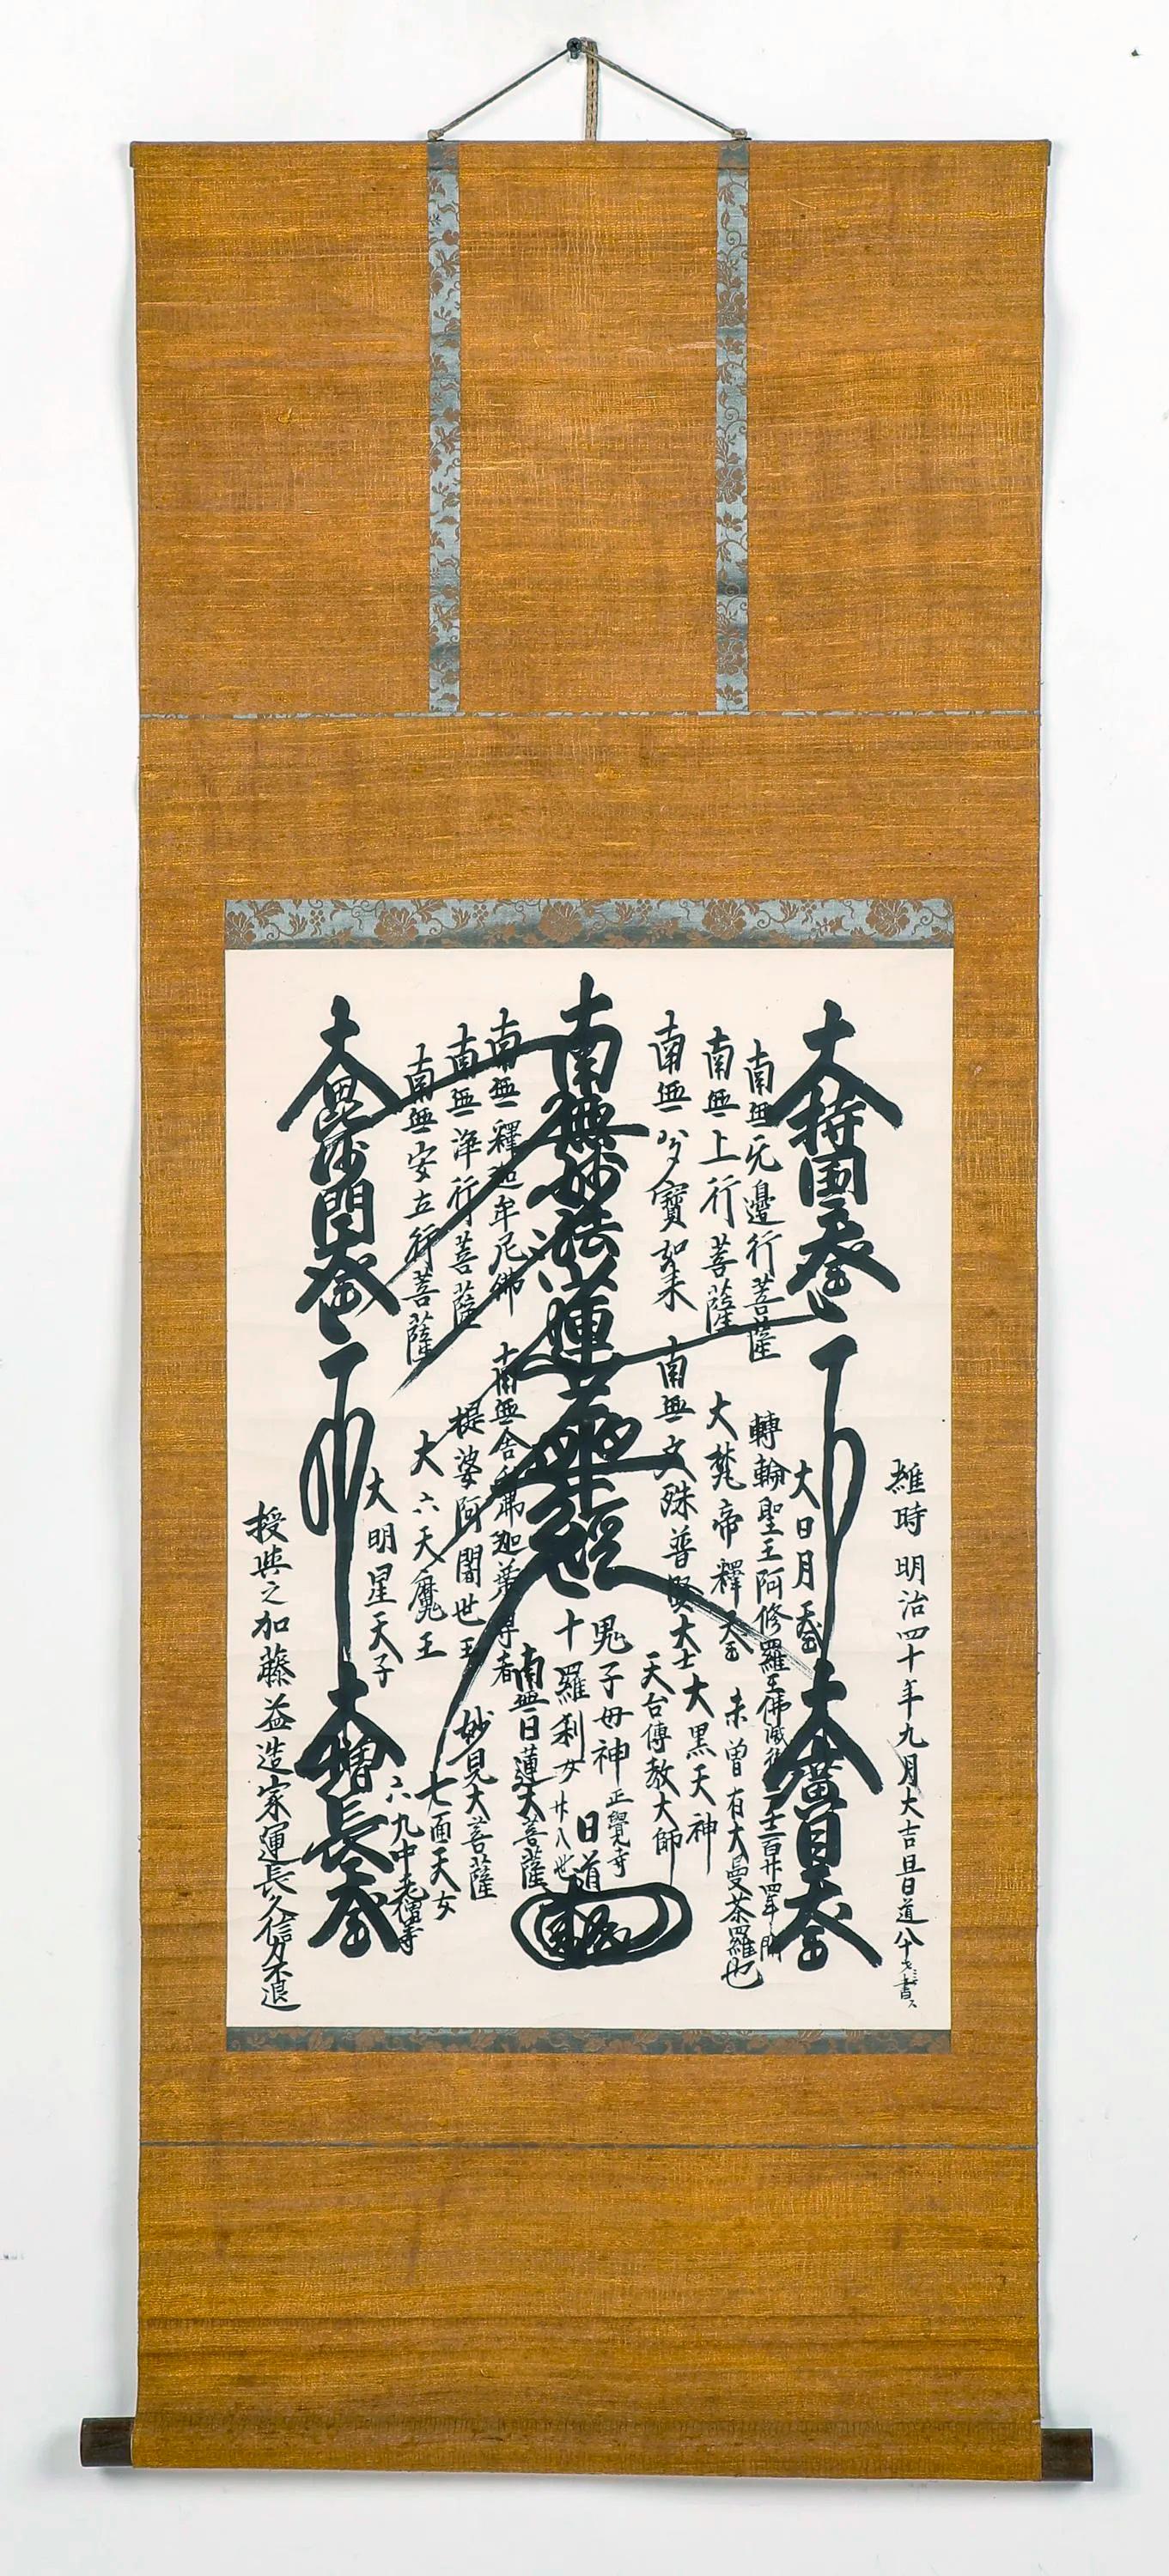 維時 明治四十年九月大吉旦日道八十才書ス
大持國天王
大廣目天王
大日月天王
南無无邊行菩薩
轉輪聖王阿修羅王佛滅後二千二百廿四年間
南無上行菩薩
大梵帝釋天王
未曾有大曼荼羅也
南無多寶如来
南無文殊普賢大士
大黒天神
天台傳教大師
南無妙法蓮華経
鬼子母神
十羅刹女
正覺寺
廿八世
日道
南無釋迦牟尼佛
南無舎利弗迦葉尊者
南無日蓮大菩薩
南無浄行菩薩
提婆阿闍世王
妙見大菩薩
南無安立行菩薩
大六天魔王
七面天女
大明星天子
六九中老僧等
大毘沙門天王
大増長天王
授與之加藤益造家運長久信力不退